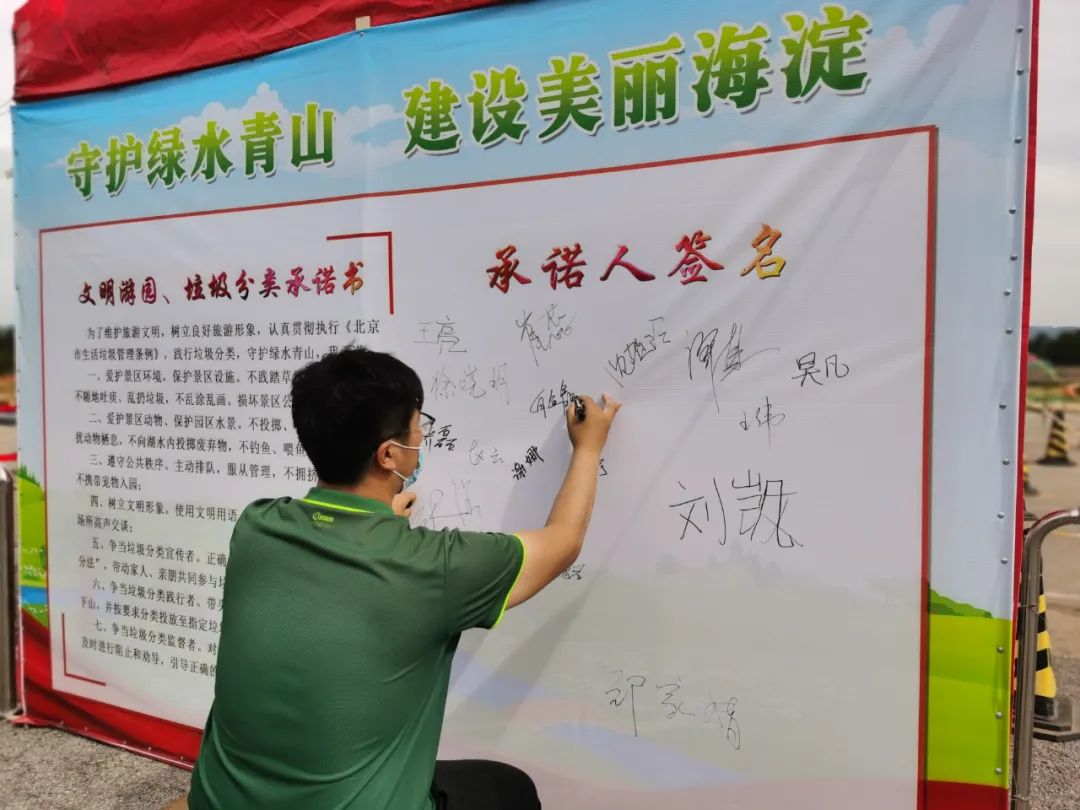 守护绿水青山 建设美丽海淀
文明游园、垃圾分类承诺书
为了维护旅游文明，树立良好旅游形象，认真贯彻执行《北京
市生活垃圾管理条例》，践行垃圾分类，守护绿水青山，我
一、爱护景区环境，保护景区设施。不践踏草
不随地吐痰、乱扔垃圾，不乱涂乱画、损坏景区公
二、爱护景区动物、保护园区水景。不投掷、
扰动物栖息，不向湖水内投掷废弃物，不钓鱼、喂鱼
三、遵守公共秩序。主动排队，服从管理，不拥挤
不携带宠物入园；
四、树立文明形象。使用文明用语
场所高声交谈；
五、争当垃圾分类宣传者。正确
分法”，带动家人、亲朋共同参与垃
六、争当垃圾分类践行者。带头
下山，并按要求分类投放至指定垃圾
七、争当垃圾分类监督者。对
及时进行阻止和劝导，引导正确的
承诺人签名
王亮
徐晓明
磊
谢娜
王伟
昊凡
刘凯